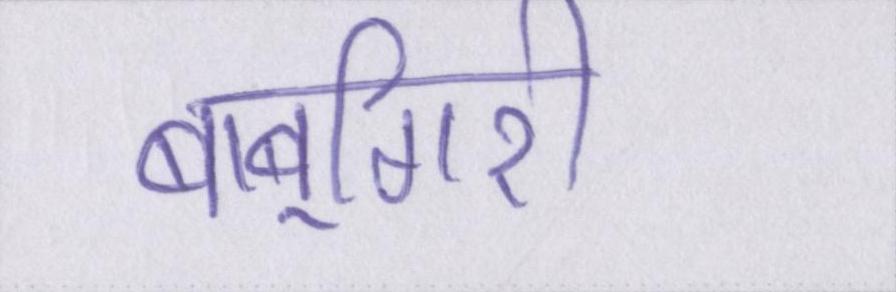 बाबूगिरी